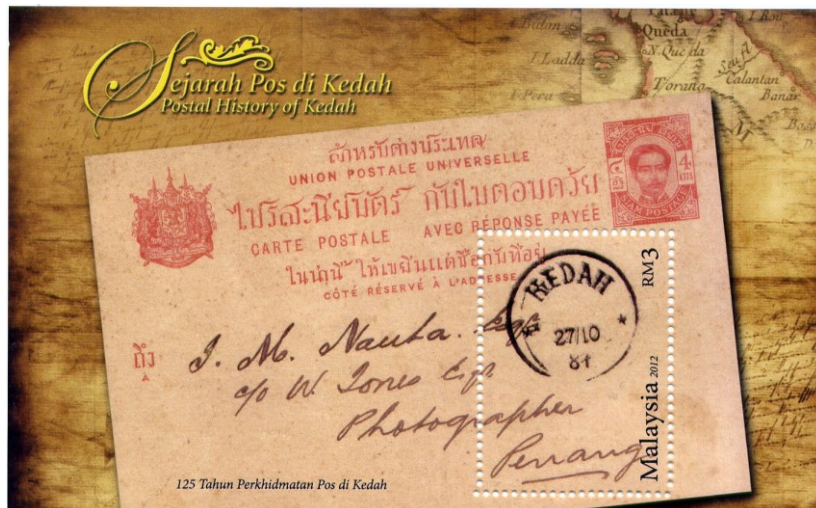 Sejarah Pos di Kedah
Postal History of Kedah
I Ladda
I Pera
Queda
N. Queda
Torano
Calantan
สำหรับต่างประเทศ
UNION POSTALE UNIVERSELLE
ไปรสะนียบัตร์ กับใบตอบด้วย
CARTE POSTALE AVEC RÉPONSE PAYÉE
ในน่านี้ ให้เขียนแต่ชื่อกับที่อยู่
CÔTÉ RÉSERVÉ À L'ADRESSE
4
SIAM POSTAGE
ถึง
J. M. Nauta. Esqr
c/o W. Jones Esqr
Photographer
Penang
KEDAH
27/10
87
RM3
Malaysia 2012
125 Tahun Perkhidmatan Pos di Kedah